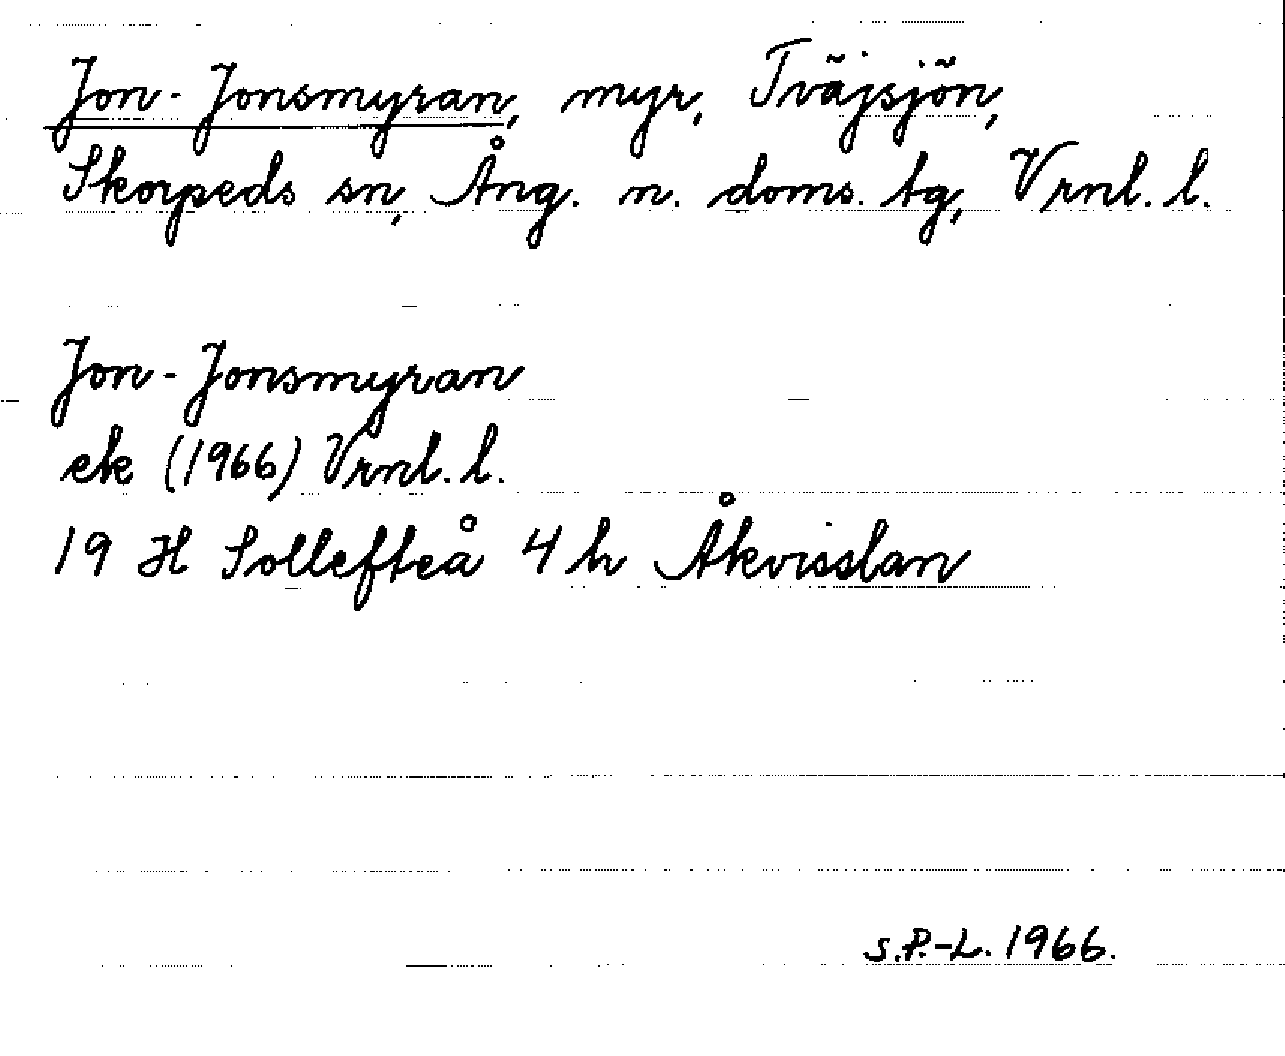 Jon-Jonsmyran, myr, Tväjsjön,
Skorpeds sn, Ång. n. doms. tg, Vrnl. l.
Jon-Jonsmyran
ek (1966) Vrnl. l.
19 H Sollefteå 4 h Åkvisslan
S.P.-L. 1966.